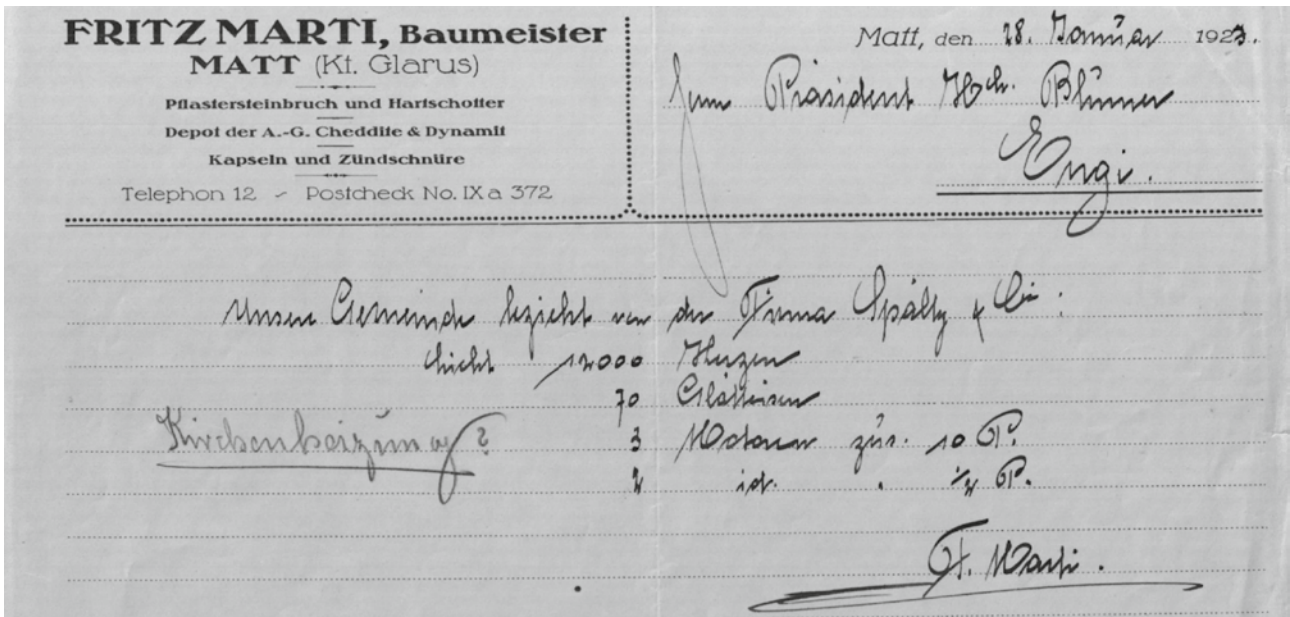 FRITZ MARTI, Baumeister
MATT (Kt. Glarus)
Pflastersteinbruch und Hartschotter
Depot der A.-G. Cheddite & Dynamit
Kapseln und Zündschnüre
Telephon 12 - Postcheck No. IX a 372
Matt, den 28. Januar 1923.
Herrn Präsident Hch. Blumer
Engi.
Unsere Gemeinde bezieht von der Firma Spälty & Cie:
Licht 12000 Kerzen
70 Glätteisen
Kirchenheizung? 3 Motoren zus. 10 P.
2 id. " 1/2 P.
F. Marti.